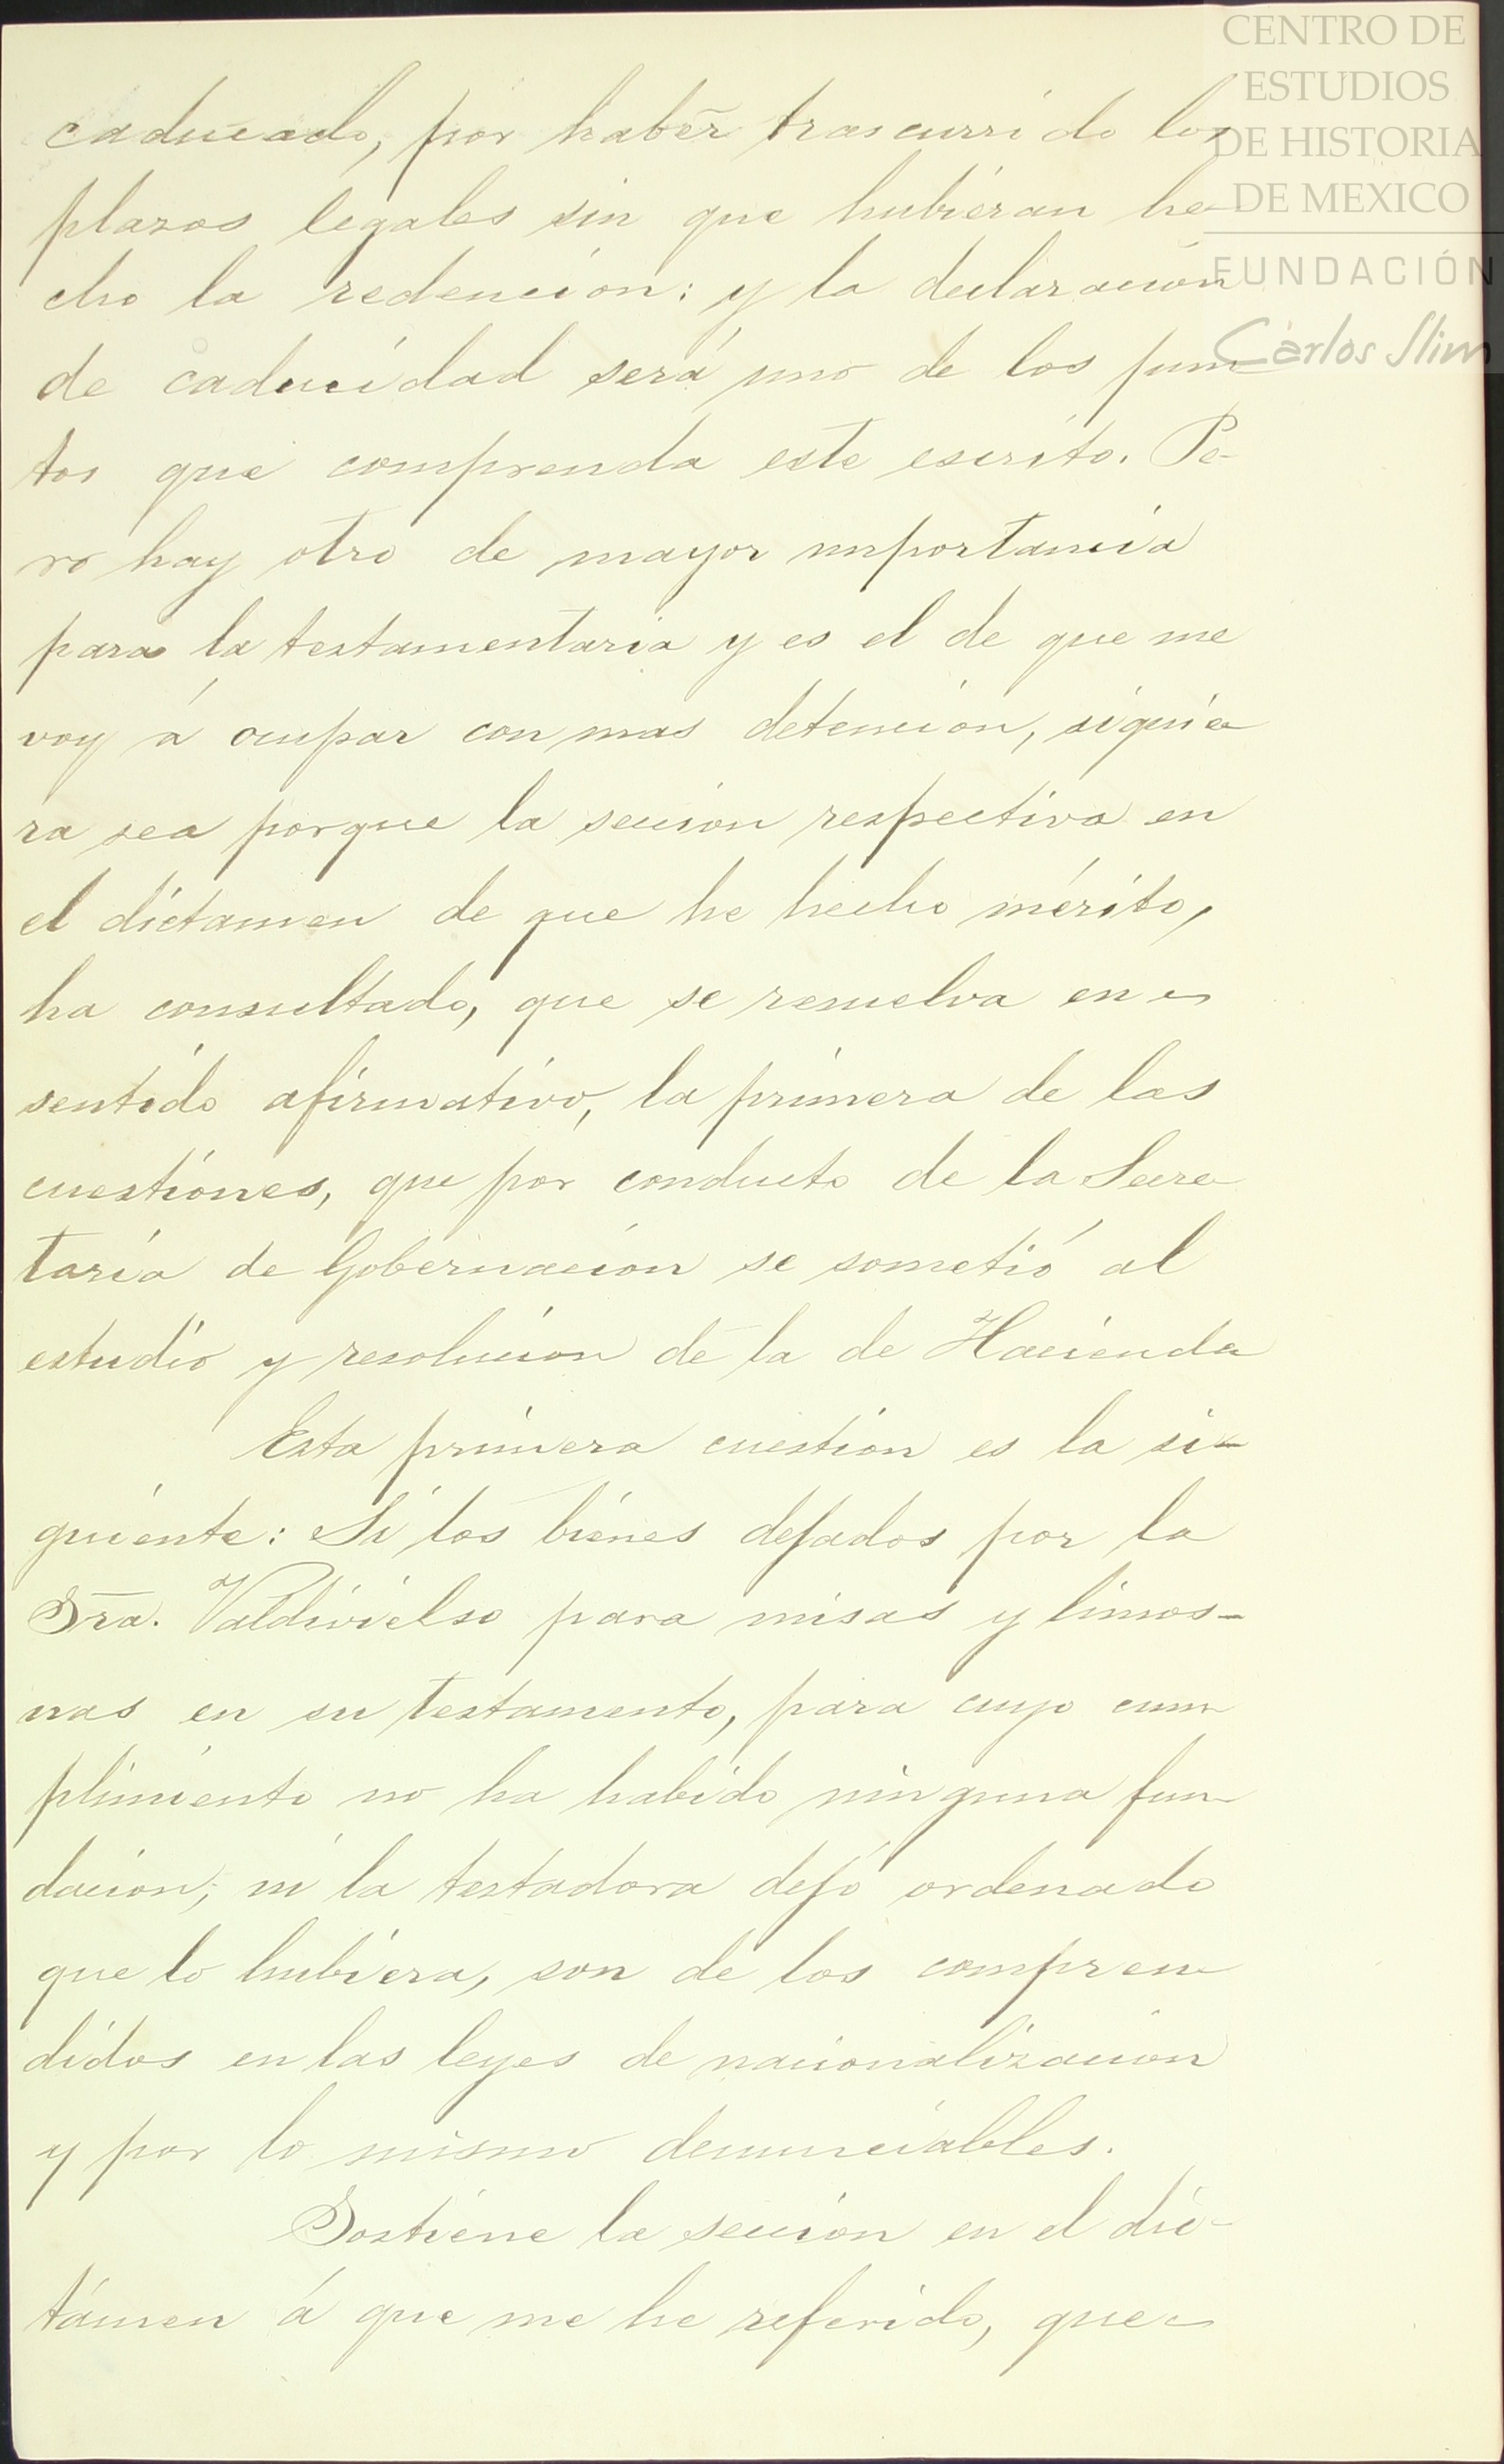 CENTRO DE
ESTUDIOS
DE HISTORIA
DE MEXICO
FUNDACIÓN
Carlos Slim
caducado, por haber trascurrido los
plazos legales sin que hubieran he-
cho la redencion: y la declaracion
de caducidad será uno de los pun
tos que comprenda este escrito. Pe-
ro hay otro de mayor importancia
para la testamentaria y es el de que me
voy á ocupar con mas detencion, siquie
ra sea porque la seccion respectiva en
el dictamen de que he hecho mérito,
ha consultado, que se resuelva en
sentido afirmativo, la primera de las
cuestiones, que por conducto de la Secre
taria de Gobernacion se sometió al
estudio y resolucion de la de Hacienda
Esta primera cuestion es la si-
guiente: Si los bienes dejados por la
Sra. Valdivielso para misas y limos-
nas en su testamento, para cuyo cum
plimiento no ha habido ninguna fun-
dacion, ni la testadora dejó ordenado
que lo hubiera, son de los compren
didos en las leyes de nacionalizacion
y por lo mismo denunciables.
Sostiene la seccion en el dic-
támen á que me he referido, que